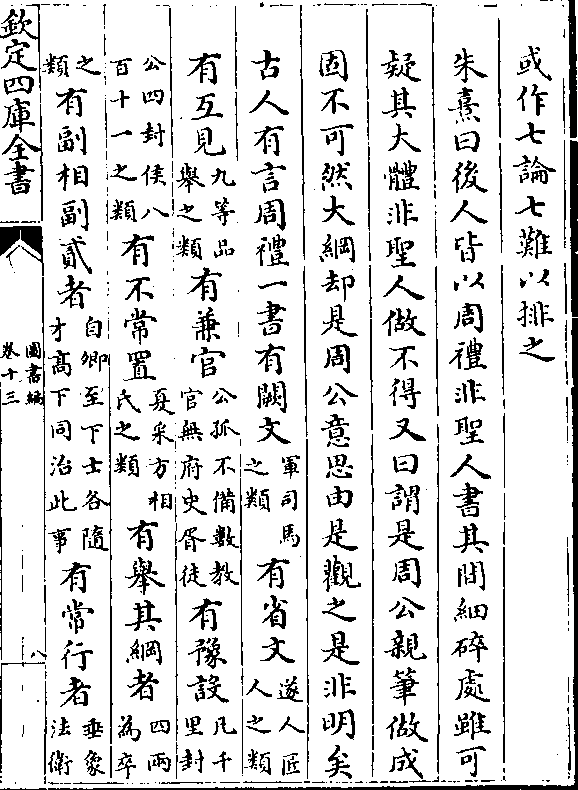 或作七論七難以排之
朱熹曰後人皆以周禮非聖人書其間細碎處雖可
疑其大體非聖人做不得又曰謂是周公親筆做成
固不可然大綱却是周公意思由是觀之是非明矣
古人有言周禮一書有闕文軍司馬之類有省文遂人匠人之類
有互見九等品舉之類有兼官公孤不備數教官無府史胥徒有豫設凡千里封
公四封侯八百十一之類有不常置夏采方相氏之類有舉其綱者四兩為卒
之類有副相副貳者自卿至下士各隨才高下同治此事有常行者垂象法衛
欽定四庫全書
圖書編
卷十三
八